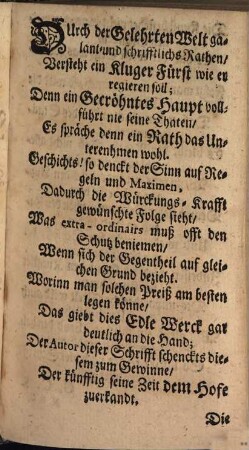 Durch der Gelehrten Welt ga-
lant-und schrifftlichs-Rathen/
Versteht ein Kluger Fürst wie er
regieren soll;
Denn ein Gecröhntes Haupt voll-
führt nie seine Thaten/
Es spräche denn ein Rath das Un-
terenhmen wohl.
Geschichts! so denckt der Sinn auf Re-
geln und Maximen,
Dadurch die Würckungs-Krafft
gewünschte Folge sieht/
Was extra-ordinairs muß offt den
Schutz beniemen/
Wenn sich der Gegentheil auf glei-
chen Grund bezieht.
Worinn man solchen Preiß am besten
legen könne/
Das giebt dies Edle Werck gar
deutlich an die Hand;
Der Autor dieser Schrifft schenckts die-
sem zum Gewinne/
Der künfftig seine Zeit dem Hofe
zuerkandt.
Die